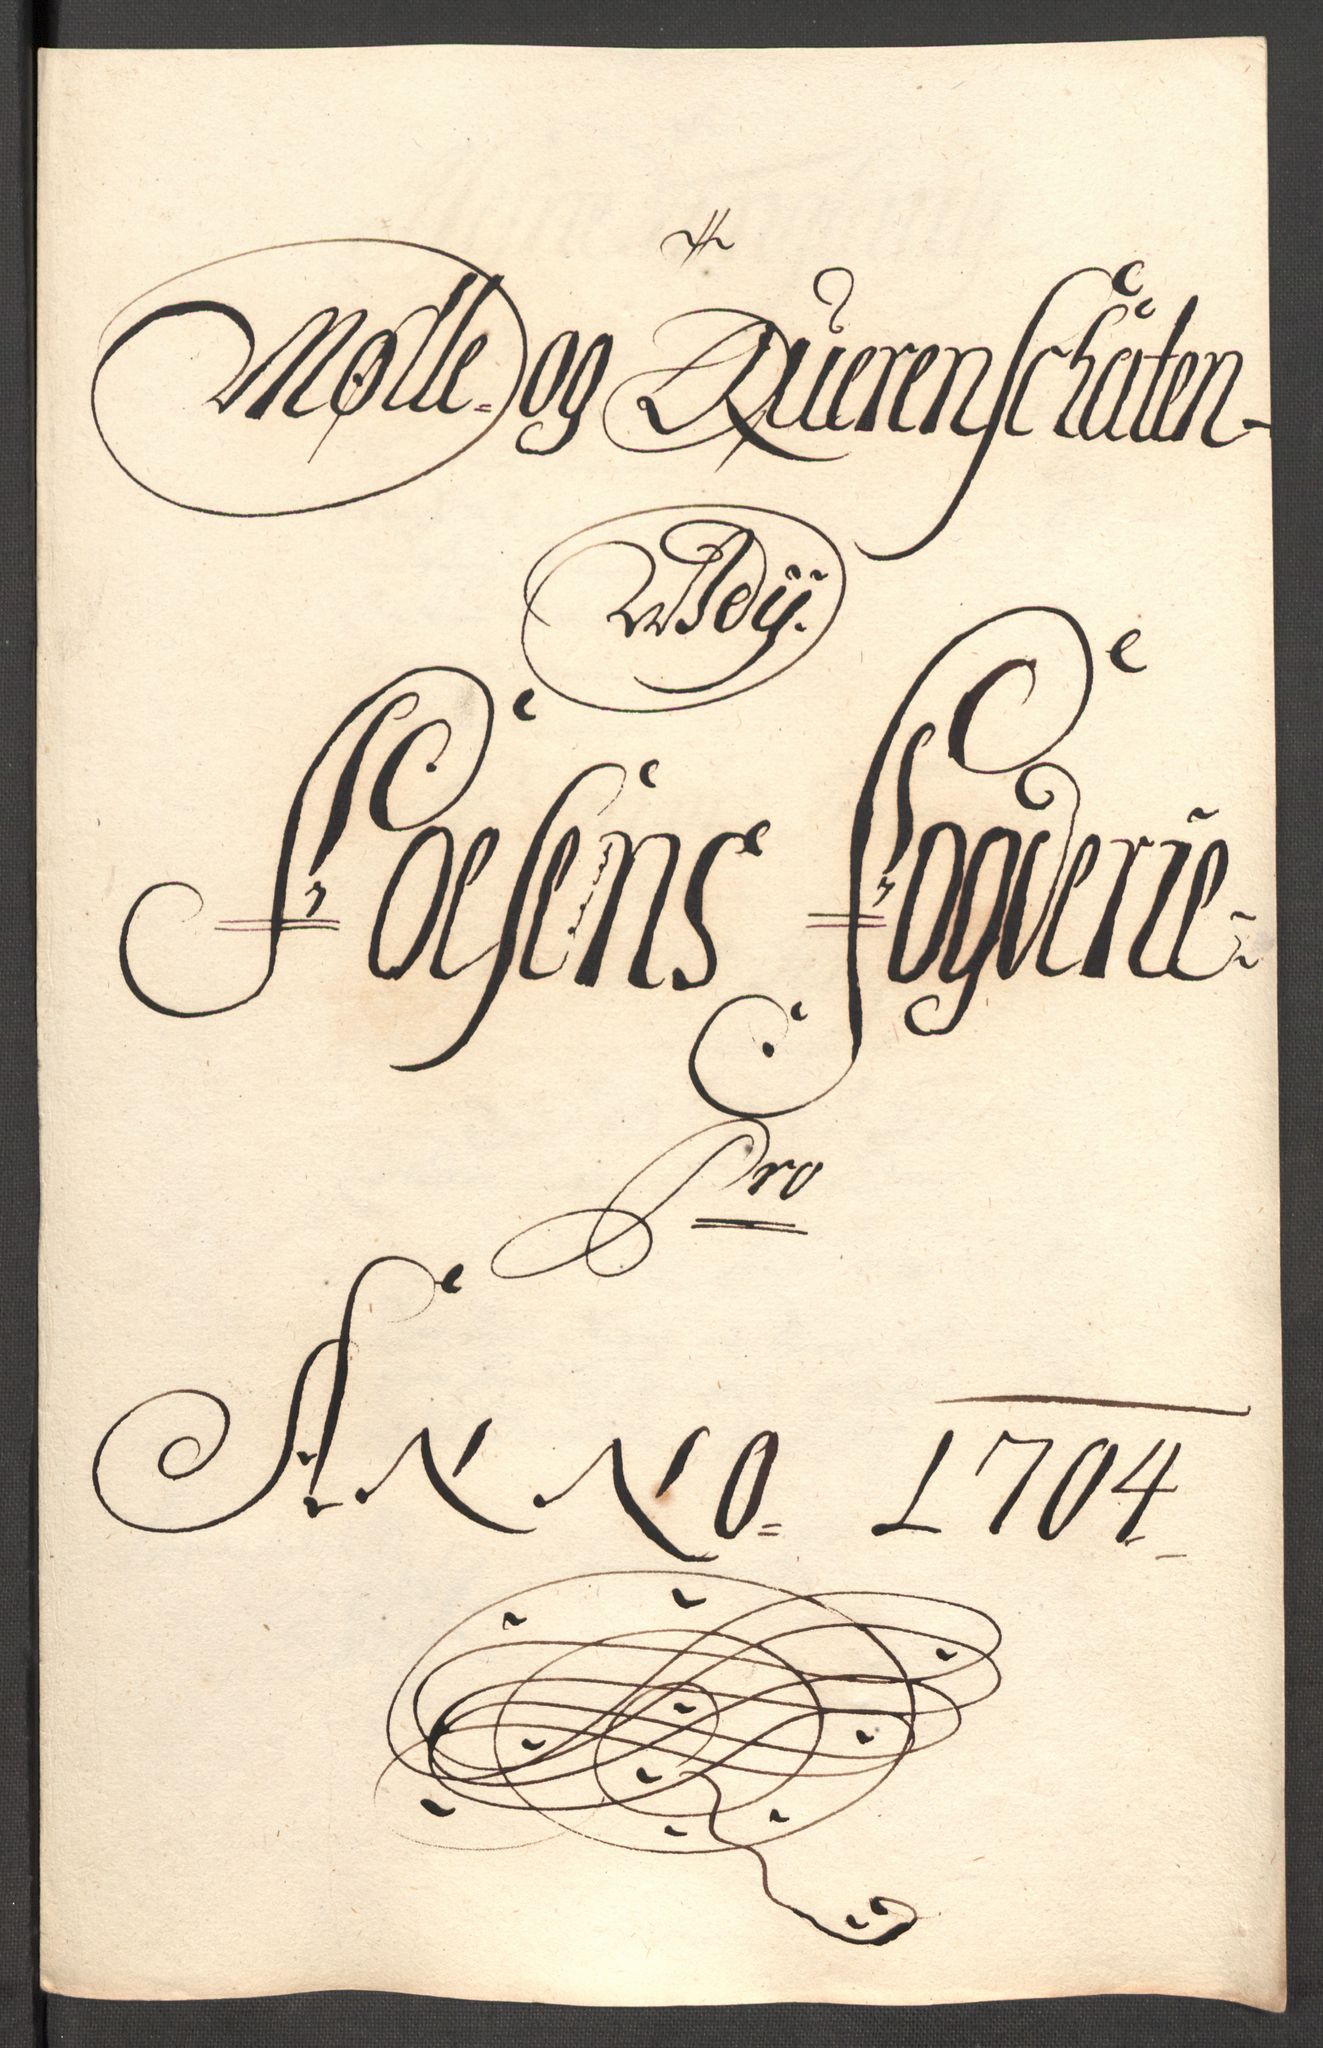 Mølle- og Querenschaten-
Udij.
Foesens Fogderie-
Pro
ANNO= 1704